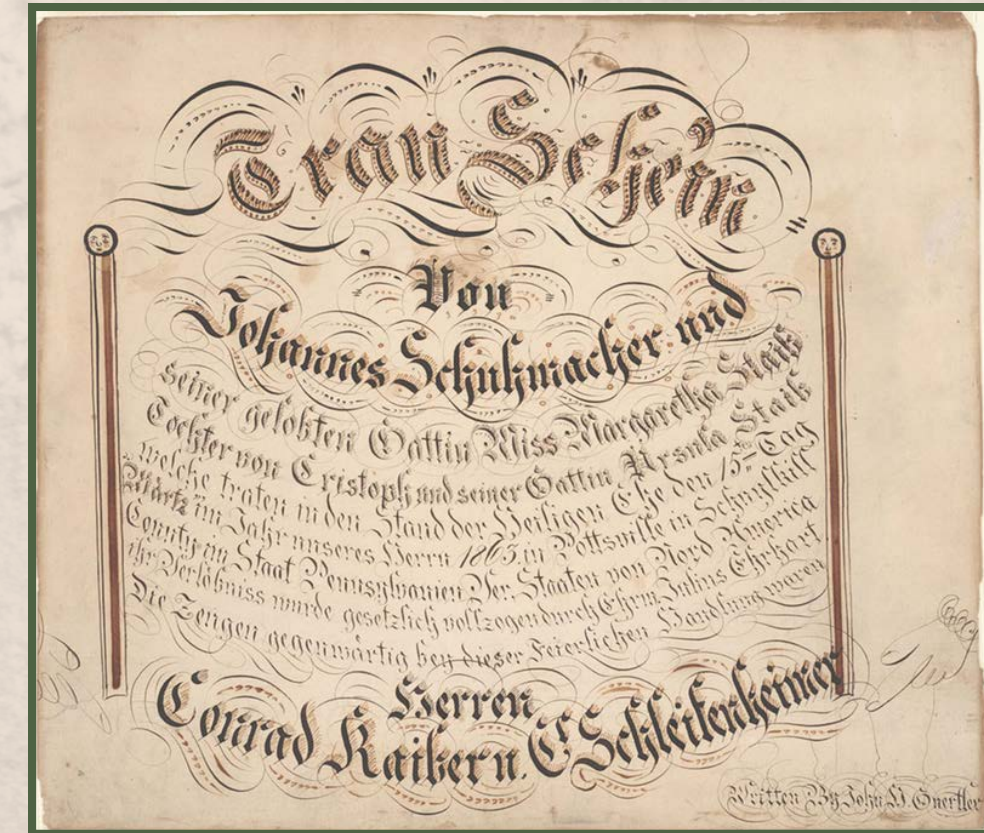 Trau Schein
Von
Johannes Schuhmacher und
seiner gelobten Gattin Miss Margaretha Staib
Tochter von Cristoph und seiner Gattin Ursula Staib
welche traten in den Stand der Heiligen Ehe den 15ten Tag
Märtz im Jahr unseres Herrn 1863. in Pottsville in Schuylkill
County im Staat Pennsylvanien Ver. Staaten von Nord America
ihr Verlöbniss wurde gesetzlich vollzogen durch Ehrw. Julius Ehrhart
Die Zeugen gegenwärtig bey dieser Feierlichen Handlung waren
Herren
Conrad Kaiber u. C. Schleifenheimer
Written By John H.